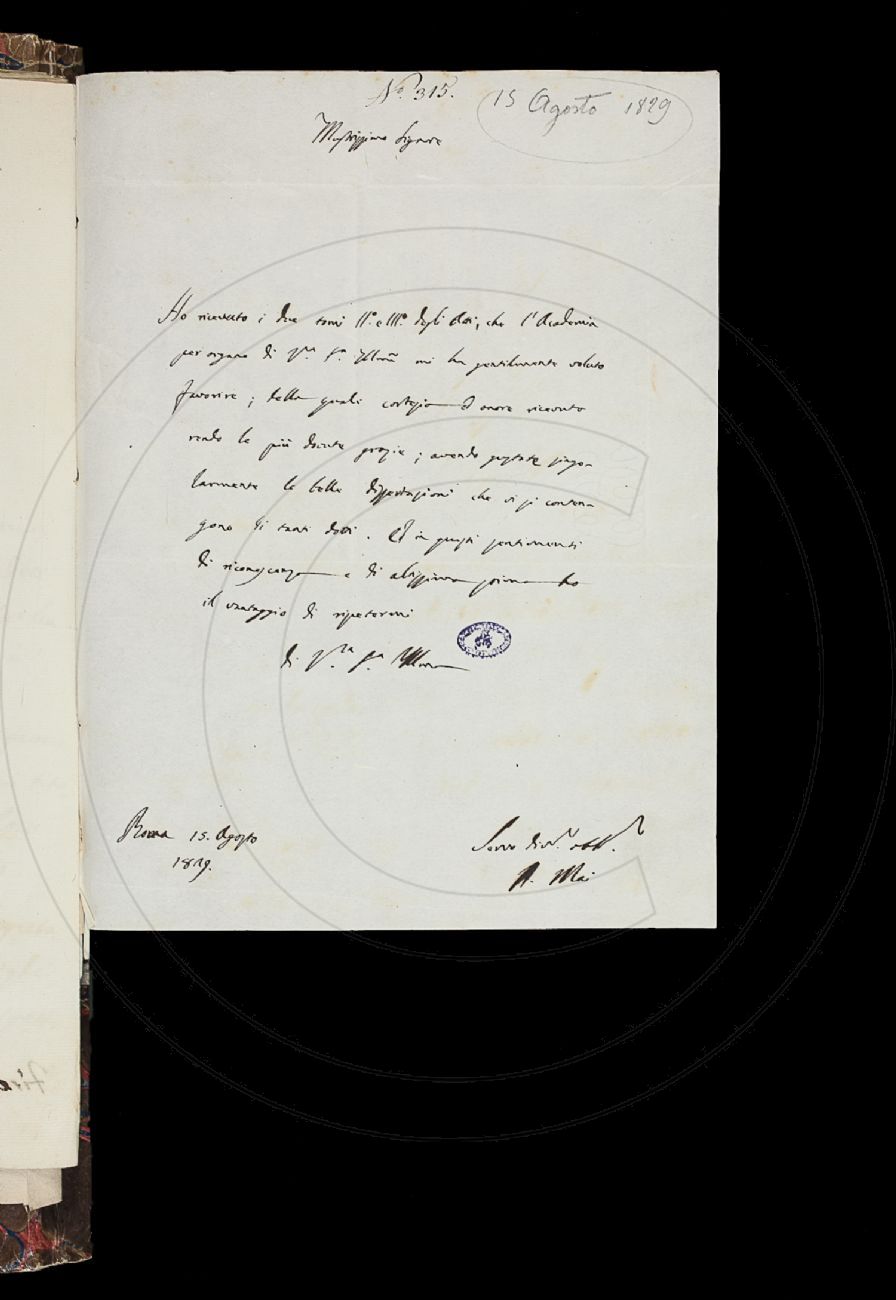 N.º 315.
15 Agosto 1829
Illustrissimo Signore
Ho ricevuto i due tomi II.º e III.º degli Atti, che l'Academia
per organo di V.ra S.ria Illma mi ha gentilmente voluto
favorire; delle quali cortesia ed onore ricevuto
rendo le più dovute grazie; avendo gustate singo-
larmente le belle dissertazioni che vi si conten-
gono di tanti dotti. Ed in questi sentimenti
di riconoscenza e di altissima stima ho
il vantaggio di ripetermi
di V.ra S.ria Illma
Roma 15. Agosto
1829.
Servo div.mo obbl.mo
A. Mai